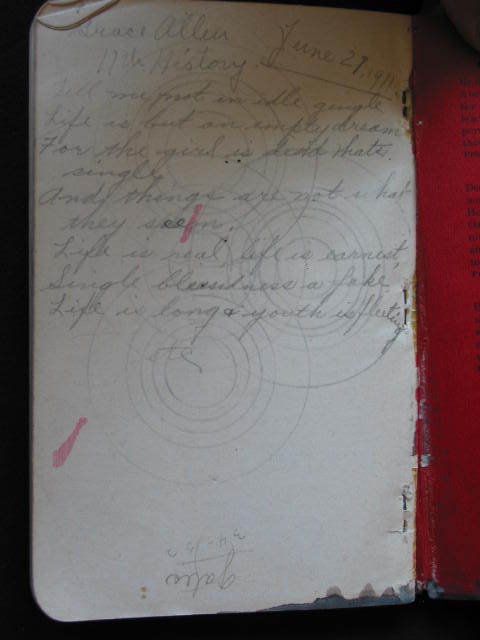 Grace Allen June 27, 1911
11th History
Tell me not in idle gingle
Life is but an empty dream
For the girl is dead thats
single
And things are not what
they seem.
Life is real, life is earnest,
Single blessedness a fake
Life is long & youth is fleeting
etc
gates